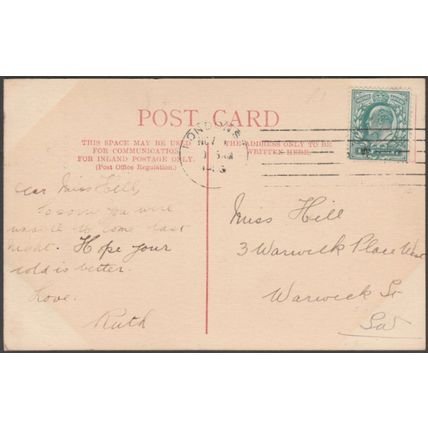 POST CARD
THIS SPACE MAY BE USED
FOR COMMUNICATION
FOR INLAND POSTAGE ONLY.
(Post Office Regulation.)
THE ADDRESS ONLY TO BE
WRITTEN HERE.
LONDON
NOV
Dear Miss Hill,
So sorry you were
unable to come last
night. Hope your
cold is better.
Love.
Ruth
Miss Hill
3 Warwick Place West
Warwick St
SW